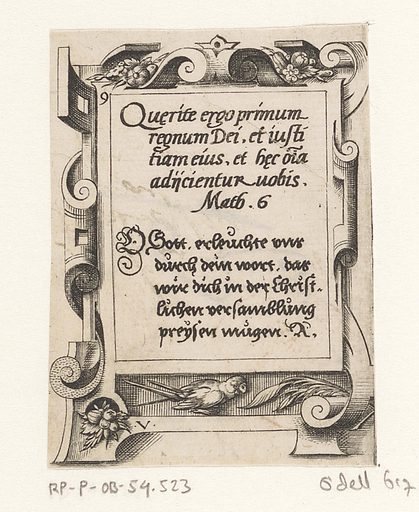 9
Quęrite ergo primum
regnum Dei, et iusti
tiam eius, et hęc oīa
adijcientur uobis.
Math. 6
O Gott, erleuchte vns
durch dein wort, das
wir dich in der Christ-
lichen versamblung
preysen mügen. R.
.V.
RP-P-OB-54.523